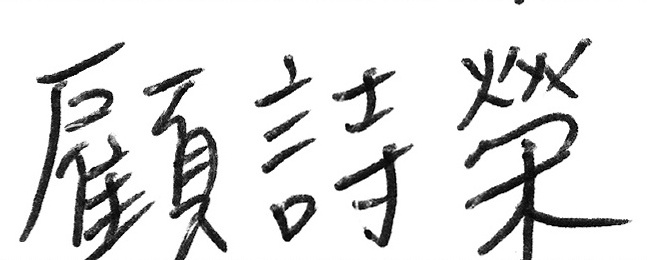 顧詩榮